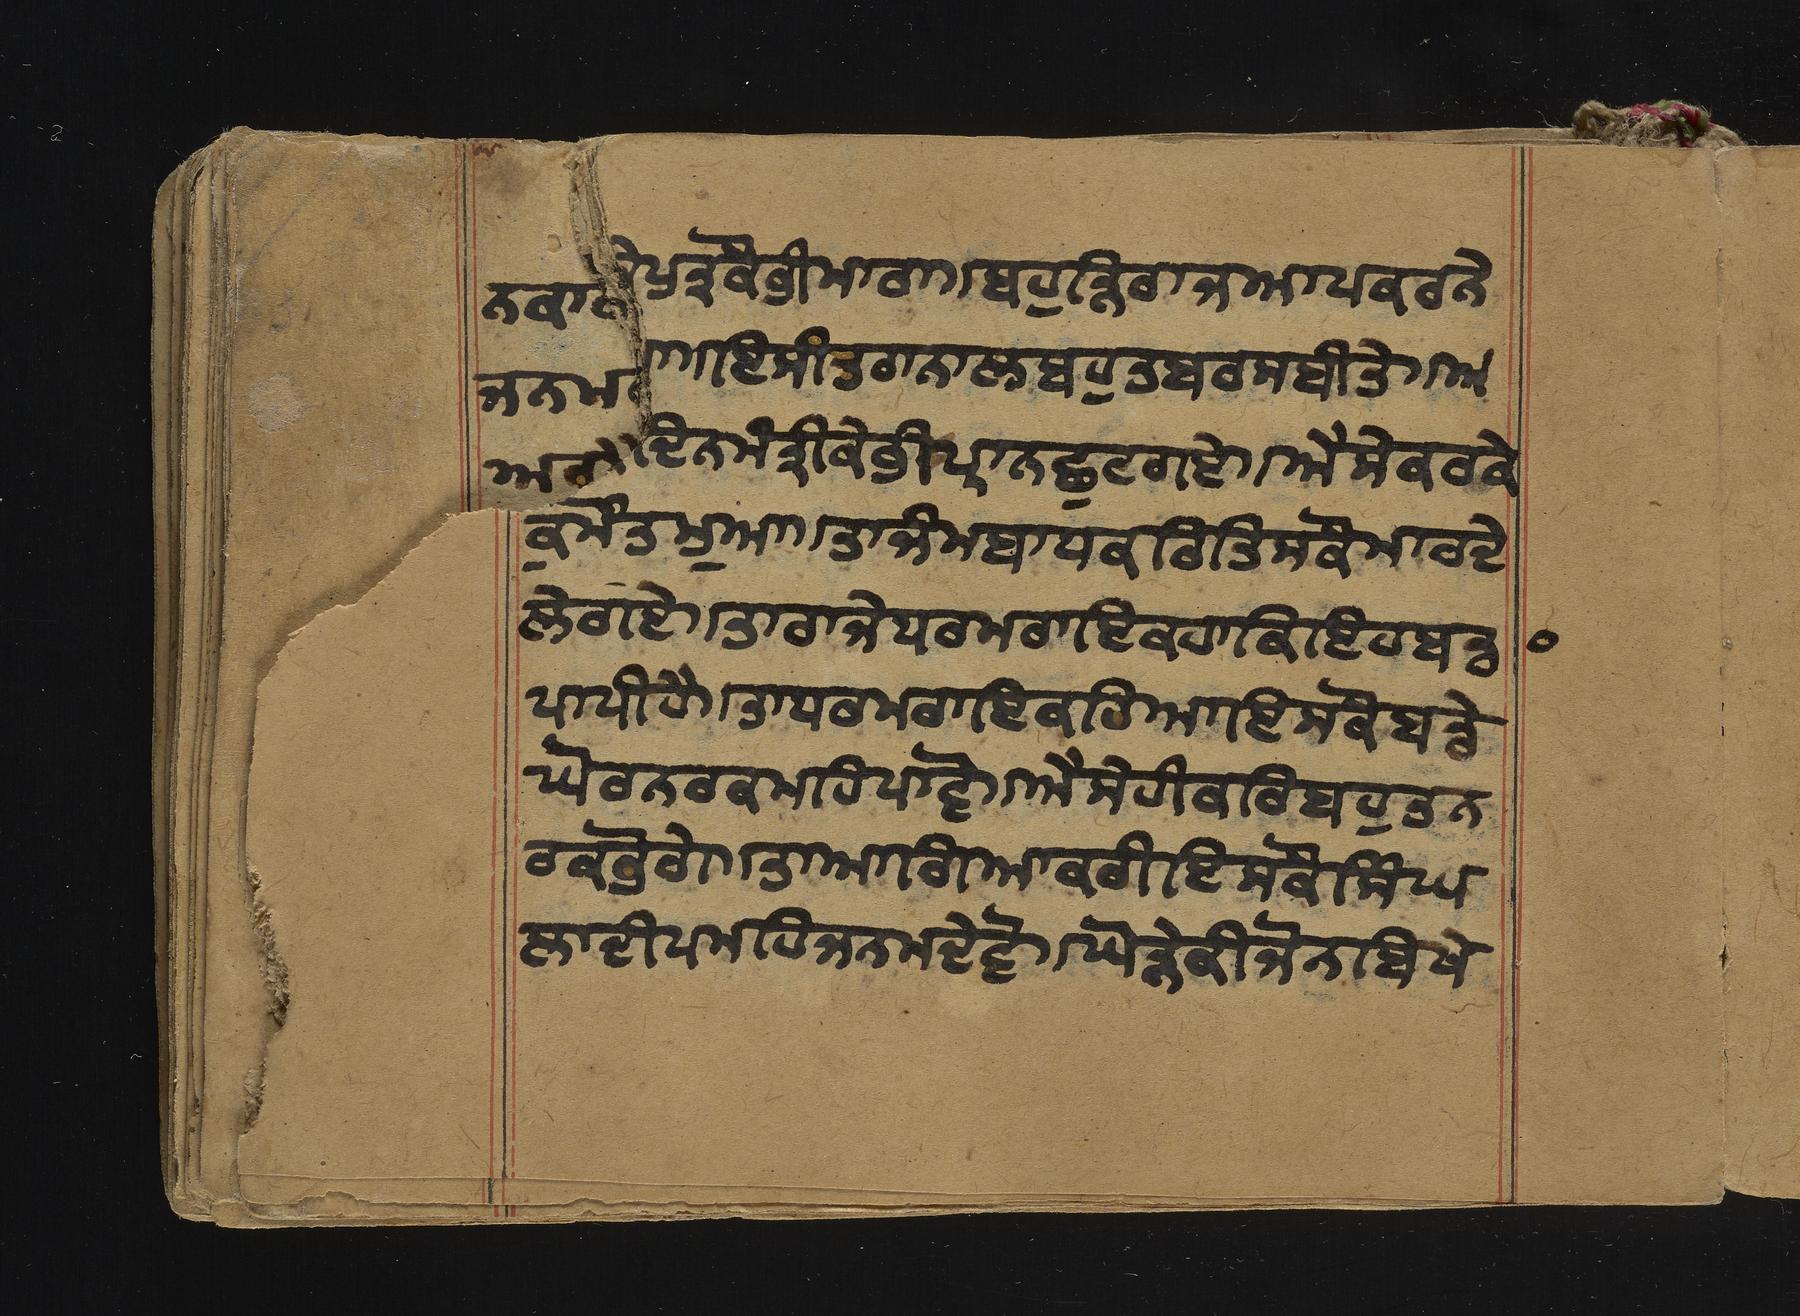 ੇਪੁਤ੍ਰਕੌਭੀਮਾਰਾ।ਬਹੁੜਿਰਾਜਆਪਕਰਨੇ
ਇਸੀਤਰਾਨਾਲਬਹੁਤਬਰਸਬੀਤੇ।ਅ
ਦਿਨਮੰਤ੍ਰੀਕੇਭੀਪ੍ਰਾਨਛੁਟਗਏ।ਐਸੇਕਰਕੇ
ਕੁਮੌਤਮੁਆ।ਤਾਜੰਮਬਾਧਕਰਿਤਿਸਕੌਮਾਰਦੇ
ਲੇਗਏ।ਤਾਰਾਜੇਧਰਮਰਾਇਕਹਾਕਿਇਹਬਡਾ
ਪਾਪੀਹੈ।ਤਾਧਰਮਰਾਇਕਹਿਆਇਸਕੌਬਡੇ
ਘੋਰਨਰਕਮਹਿਪਾਵੋ।ਐਸੇਹੀਕਰਿਬਹੁਤਨ
ਰਕਭੋਗੇ।ਤਾਆਗਿਆਕਰੀਇਸਕੌਸਿੰਘ
ਲਾਦੀਪਮਹਿਜਨਮਦੇਵੋ।ਘੋੜੇਕੀਜੋਨਬਿਖੇ
ਨਕਾ
ਜਨਮ